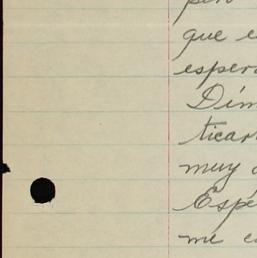 que e
esper
Dim
ticar
muy
Espe
me e